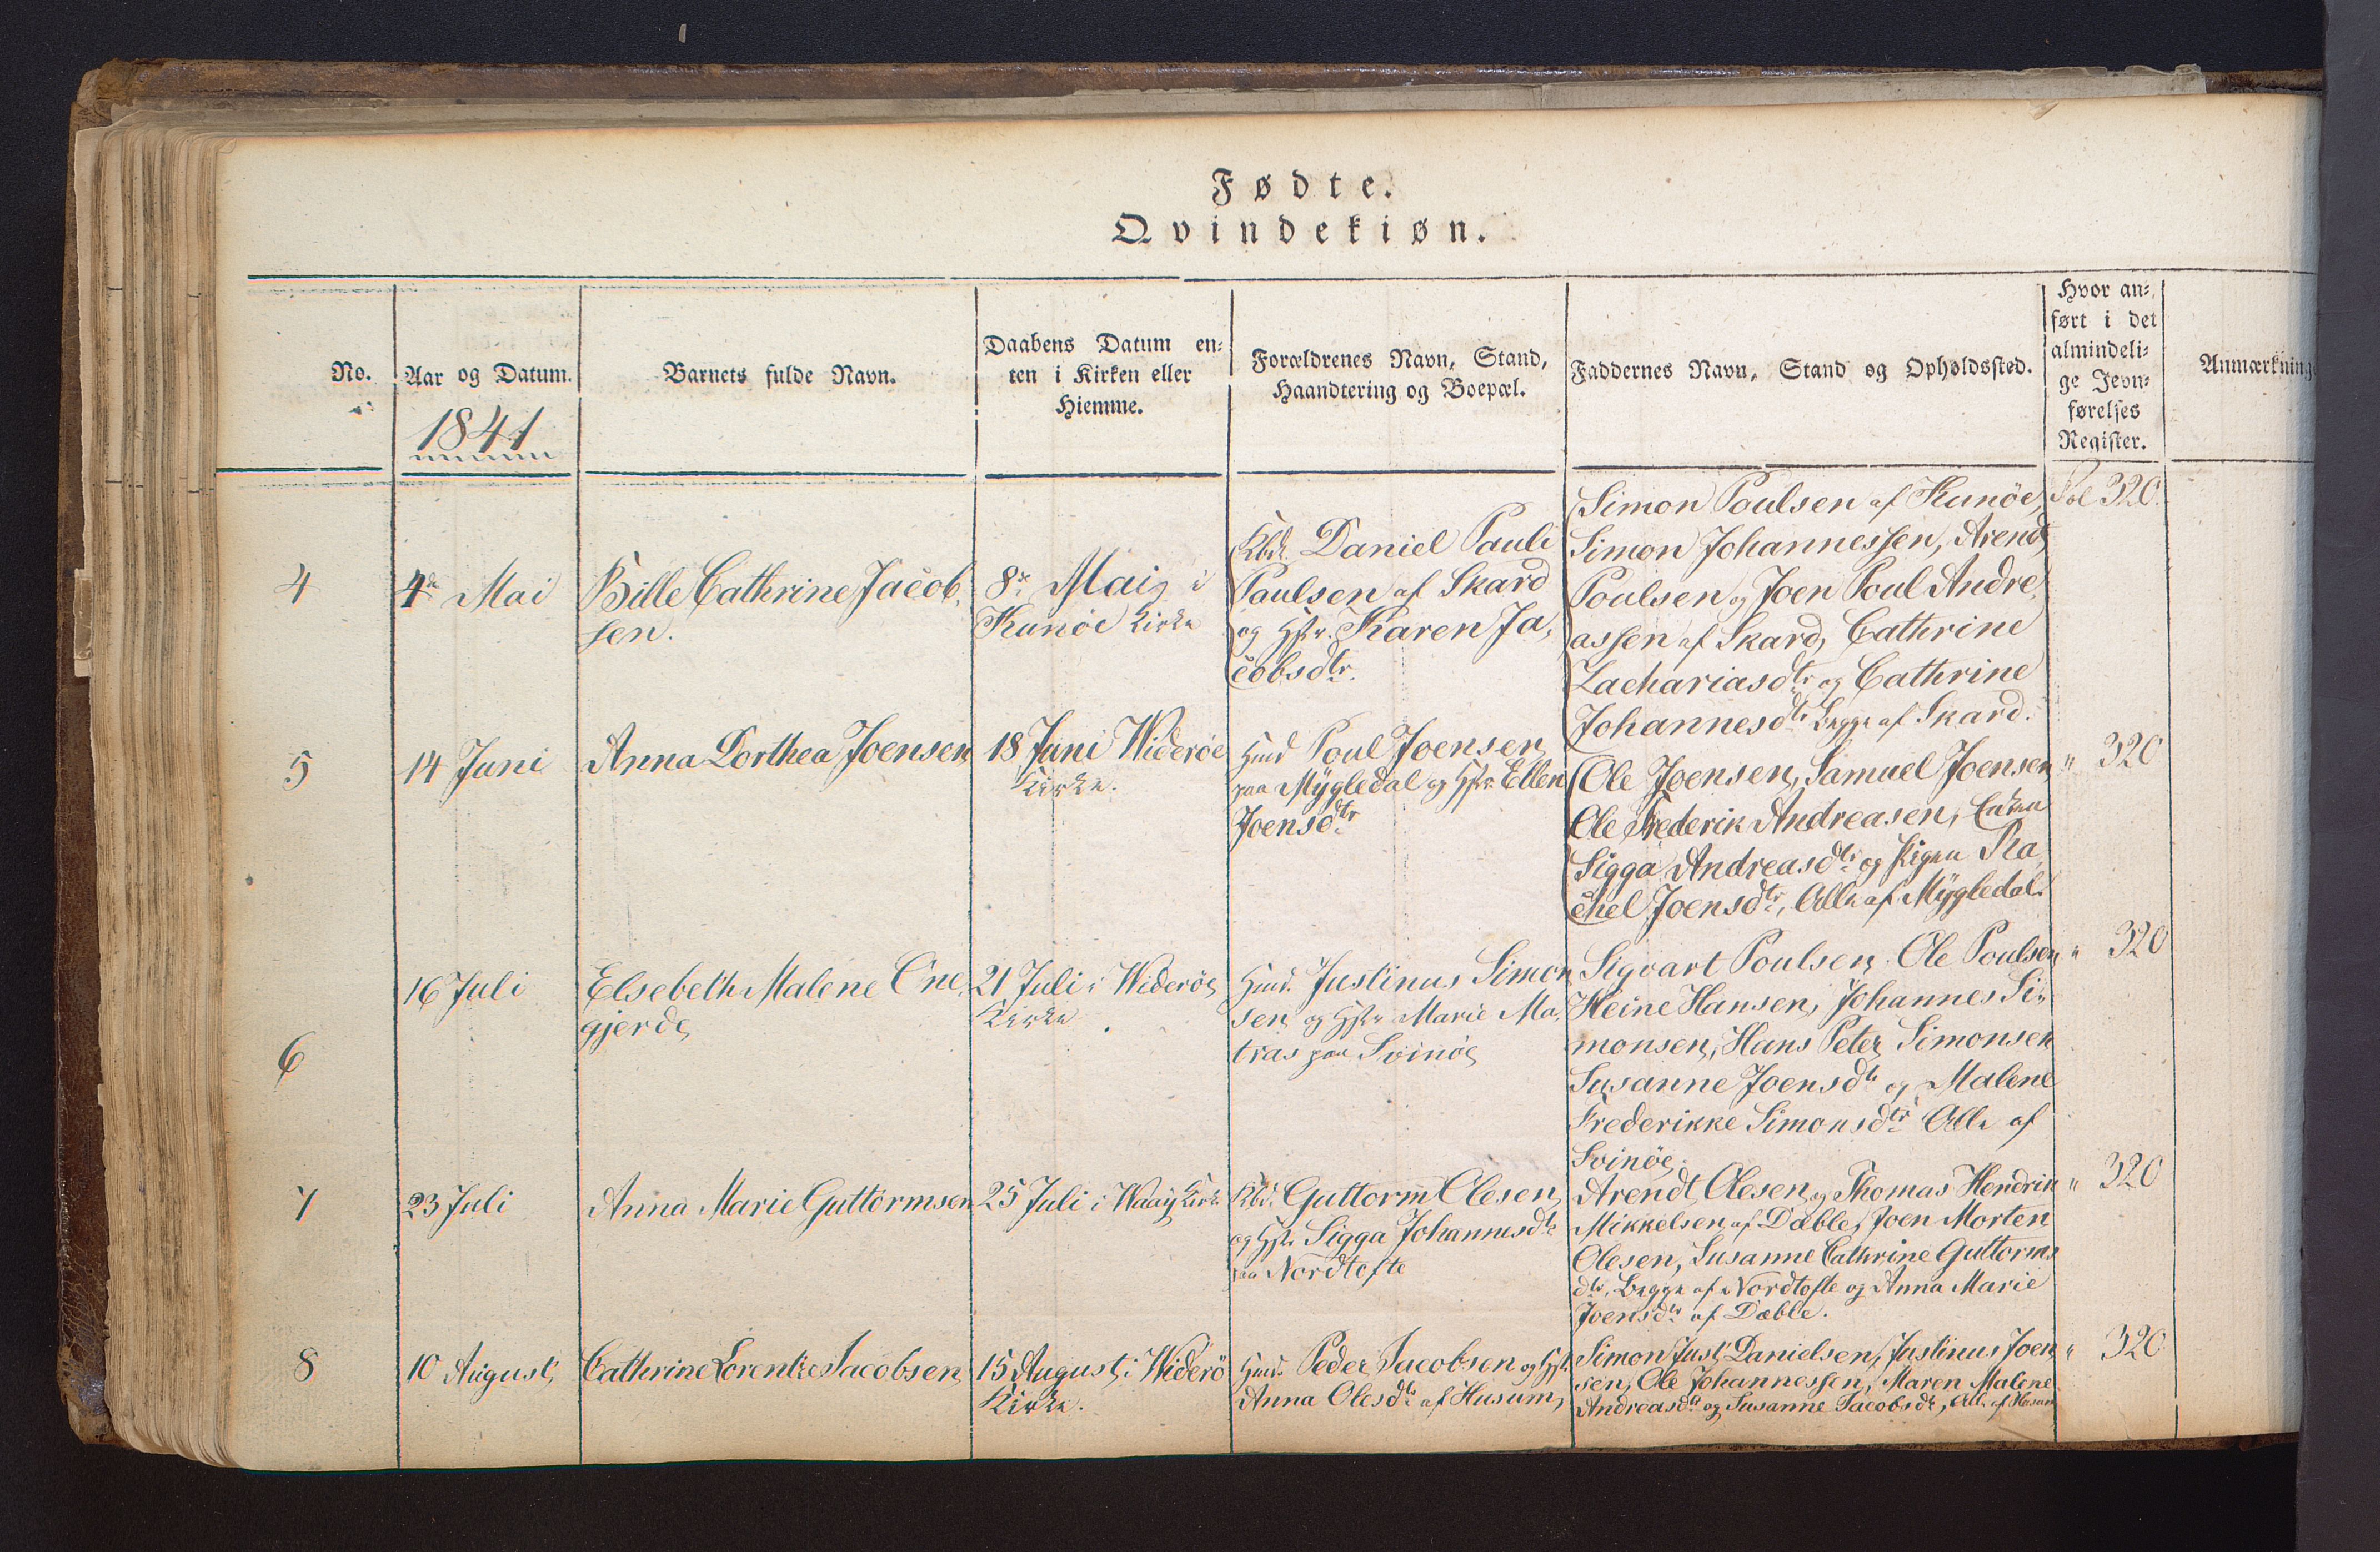 Fødte.
Qvindekiøn.
No.
Aar og Datum.
1841
Barnets fulde Navn.
Daabens Datum en-
ten i Kirken eller
Hiemme.
Forældrenes Navn, Stand,
Haandtering og Boepæl.
Faddernes Navn, Stand og Opholdssted.
Hvor an-
ført i det
almindeli-
ge Jevn-
førelses
Register.
Anmærkning
4
4de Mai
Bille Cathrine Jacob-
sen.
8de Mai i
Kunöe Kirke
Kbd. Daniel Pauli
Paulsen af Skard
og Hstr. Karen Ja-
cobsdtr.
Simon Poulsen af Kunöe,
Simon Johannessen, Arendt
Poulsen og Joen Poul Andre-
assen af Skard, Cathrine
Zachariasdtr og Cathrine
Johannesdtr begge af Skard.
Fol 320.
5
14 Juni
Anna Dorthea Joensen
18 Juni Wideröe
Kirke.
Hmd Poul Joensen
paa Mÿgledal og Hstr. Ellen
Joensdtr
Ole Joensen, Samuel Joensen
Ole Frederik Andreasen,
Sigga Andreasdtr og Pigen Ra-
chel Joensdtr, Alle af Mÿgledal.
" 320
6
16 Juli
Elsebeth Malene One-
gjerde
21 Juli i Wideröe
Kirke
Hmd. Justinus Simon
sen og Hstr Marie Ma-
tras paa Svinöe
Sigvart Poulsen Ole Poulsen
Heine Hansen, Johannes Si-
monsen, Hans Peter Simonsen
Susanne Joensdtr og Malene
Frederikke Simonsdtr Alle af
Svinöe.
" 320
7
23 Juli
Anna Marie Guttormsen
25 Juli i Waaÿ Kirke
Kbd. Guttorm Olesen
og Hstr Sigga Johannesdtr
paa Nordtofte
Arendt Olesen og Thomas Hendrik
Mikkelsen af Dæble, Joen Morten
Olesen, Susanne Cathrine Guttorms
dtr, Begge af Nordtofte og Anna Marie
Joensdtr af Dæble.
" 320
8
10 August
Cathrine Lorentze Jacobsen
15 August i Widerö
Kirke.
Hmd. Peder Jacobsen og Hstr
Anna Olesdtr af Husum,
Simon Just Danielsen, Justinus Joen
sen, Ole Johannessen, Maren Malene
Andreasdtr og Susanne Jacobsdtr, Alle af Husum
" 320